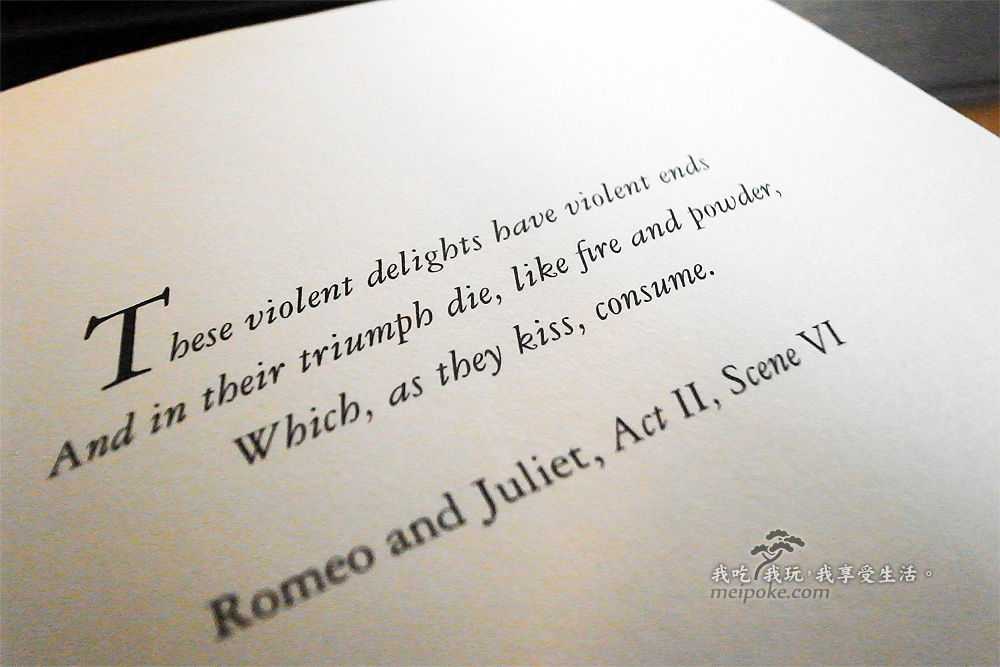 These violent delights have violent ends
And in their triumph die, like fire and powder,
Which, as they kiss, consume.
Romeo and Juliet, Act II, Scene VI
我吃,我玩,我享受生活。
meipoke.com